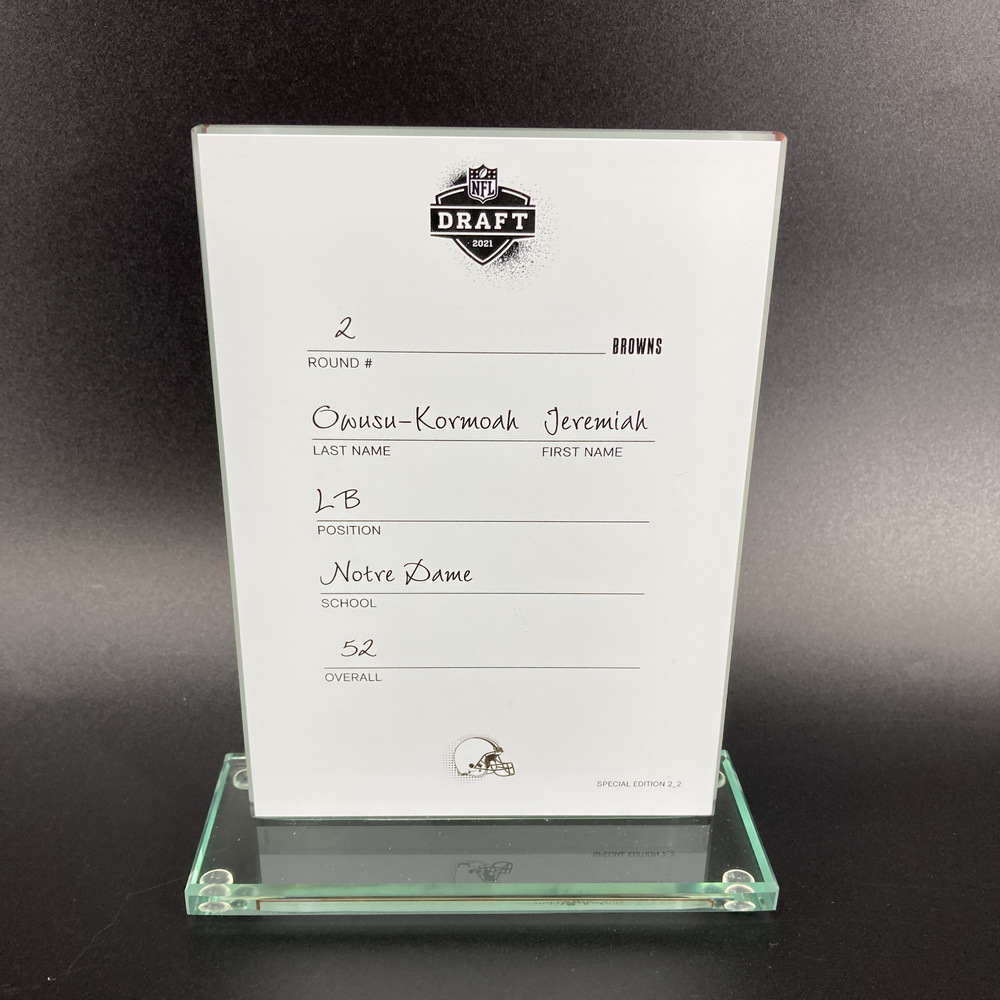 NFL
DRAFT
2021
2
BROWNS
ROUND #
Owusu-Kormoah Jeremiah
LAST NAME FIRST NAME
LB
POSITION
Notre Dame
SCHOOL
52
OVERALL
SPECIAL EDITION 2_2